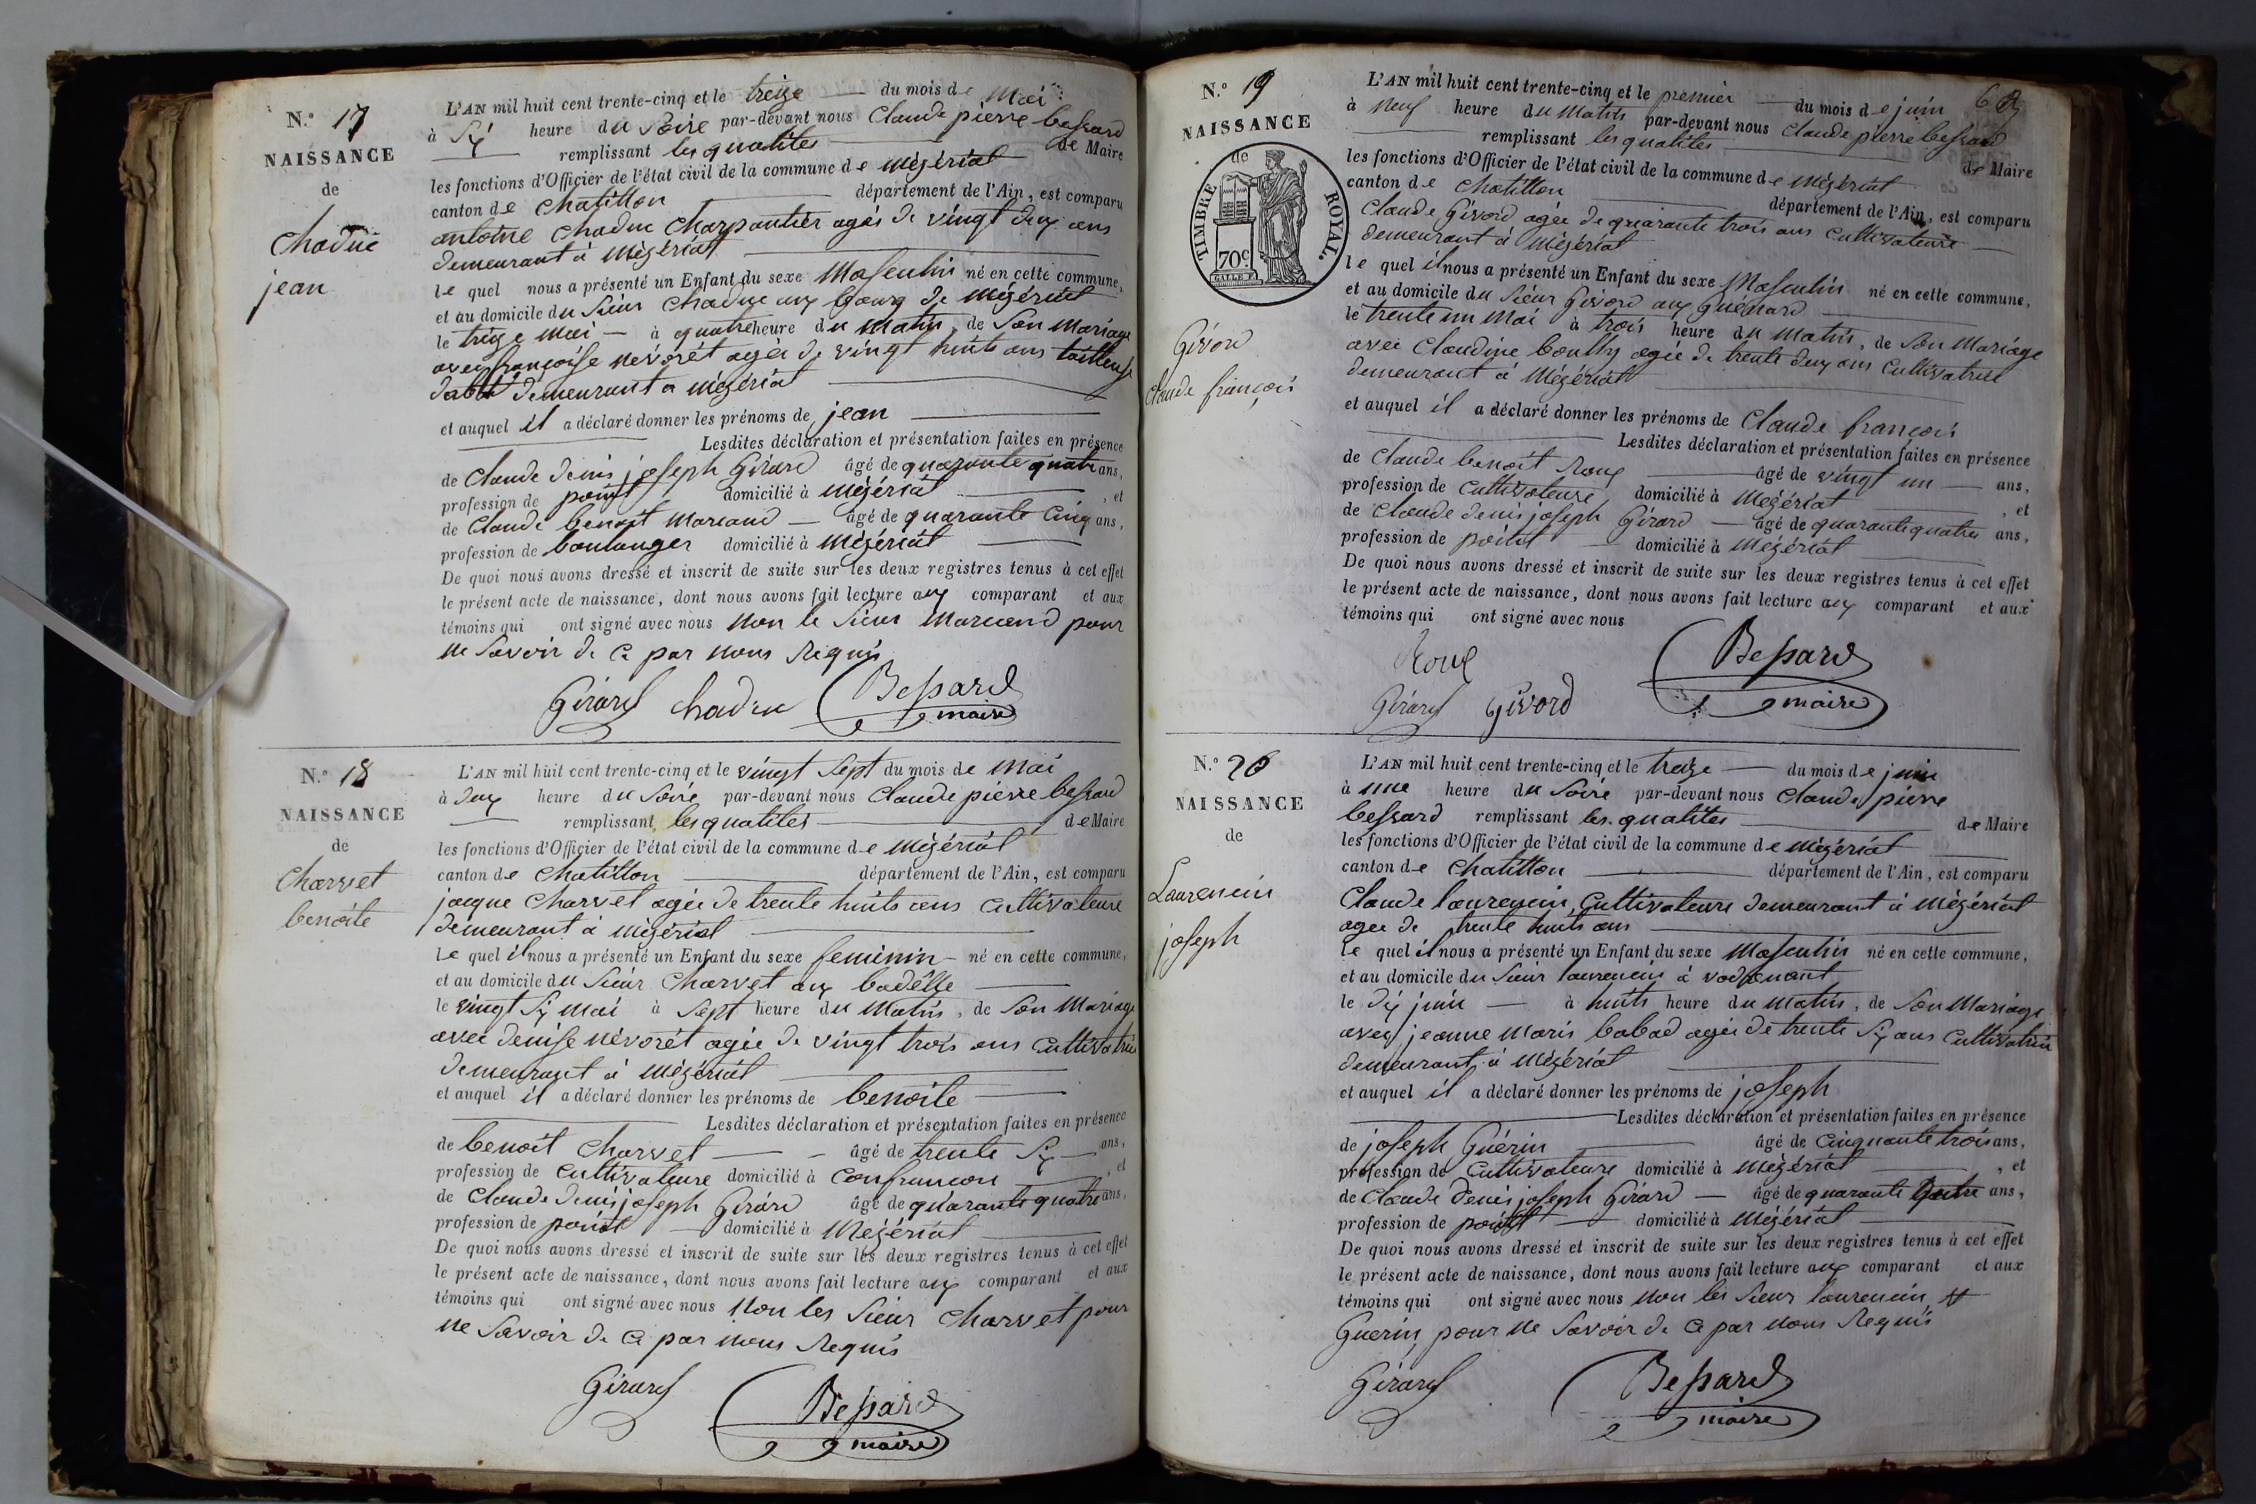 N.° 17
NAISSANCE
de
Chadue
jean
L'AN mil huit cent trente-cinq et le treize du mois de Mai
à Six heure du Soire par-devant nous Claude pierre bessard
remplissant les qualités de Maire
les fonctions d'Officier de l'état civil de la commune de Mézériat
canton de Chatillon département de l'Ain, est comparu
antoine Chadue Charpantier agés de vingt deux ans
demeurant à Mézériat
le quel nous a présenté un Enfant du sexe Masculin né en cette commune,
et au domicile du Sieur Chadue aux bourg de Mézériat
le treize Mai à quatre heure du Matin, de Son Mariage
avec françoise nevorét agée de vingt huits ans tailleuse
demeurant a Mézériat
et auquel il a déclaré donner les prénoms de jean
Lesdites déclaration et présentation faites en présence
de Claude denis joseph Girard âgé de quarante quatre ans,
profession de domicilié à Mézériat, et
de Claude benoit Marcand âgé de quarante Cinq ans,
profession de boulanger domicilié à Mézériat
De quoi nous avons dressé et inscrit de suite sur les deux registres tenus à cet effet
le présent acte de naissance, dont nous avons fait lecture aux comparant et aux
témoins qui ont signé avec nous Non le Sieur Marcand pour
ne Savoir de Ce par nous Requis
Girard Chadue Bessard
maire
N.° 18
NAISSANCE
de
Charvet
benoite
L'AN mil huit cent trente-cinq et le vingt Sept du mois de Mai
à deux heure du Soire par-devant nous Claude pierre bessard
remplissant les qualités de Maire
les fonctions d'Officier de l'état civil de la commune de Mézériat
canton de Chatillon département de l'Ain, est comparu
jacque Charvet agée de trente huits ans Cultivateure
demeurant à Mézériat
Le quel il nous a présenté un Enfant du sexe feminin né en cette commune,
et au domicile du Sieur Charvet aux
le vingt Six Mai à Sept heure du Matin, de Son Mariage
avec denise névorét agée de vingt trois ans Cultivatrice
demeurant à Mézériat
et auquel il a déclaré donner les prénoms de benoite
Lesdites déclaration et présentation faites en présence
de benoit Charvet âgé de trente Six ans,
profession de Cultivateure domicilié à Confrancon, et
de Claude denis joseph Girard âgé de quarante quatre ans,
profession de domicilié à Mézériat
De quoi nous avons dressé et inscrit de suite sur les deux registres tenus à cet effet
le présent acte de naissance, dont nous avons fait lecture aux comparant et aux
témoins qui ont signé avec nous Non les Sieur Charvet pour
ne Savoir de Ce par nous Requis
Girard Bessard
maire
N.° 19
NAISSANCE
de
TIMBRE ROYAL.
70c
Givord
Claude françois
L'AN mil huit cent trente-cinq et le premier du mois de juin
à neuf heure du Matin par-devant nous Claude pierre bessard
remplissant les qualités de Maire
les fonctions d'Officier de l'état civil de la commune de Mézériat
canton de Chatillon département de l'Ain, est comparu
Claude Givord agée de quarante trois ans Cultivateure
demeurant à Mézériat
le quel il nous a présenté un Enfant du sexe Masculin né en cette commune,
et au domicile du Sieur Givord aux Guénard
le trente un Mai à trois heure du Matin, de Son Mariage
avec Claudine agée de trente deux ans Cultivatrice
demeurant à Mézériat
et auquel il a déclaré donner les prénoms de Claude françois
Lesdites déclaration et présentation faites en présence
de Claude benoit Roux âgé de vingt un ans,
profession de Cultivateure domicilié à Mézériat, et
de Claude denis joseph Girard âgé de quarante quatre ans,
profession de domicilié à Mézériat
De quoi nous avons dressé et inscrit de suite sur les deux registres tenus à cet effet
le présent acte de naissance, dont nous avons fait lecture aux comparant et aux
témoins qui ont signé avec nous
Roux Bessard
Girard Givord maire
N.° 20
NAISSANCE
de
Laurencin
joseph
L'AN mil huit cent trente-cinq et le treize du mois de juin
à une heure du Soire par-devant nous Claude pierre
bessard remplissant les qualités de Maire
les fonctions d'Officier de l'état civil de la commune de Mézériat
canton de Chatillon département de l'Ain, est comparu
Claude laurencin Cultivateure demeurant à Mézériat
agée de trente huits ans
Le quel il nous a présenté un Enfant du sexe Masculin né en cette commune,
et au domicile du Sieur laurencin à
le dix juin à huits heure du Matin, de Son Mariage
avec jeanne Marie babad agée de trente Six ans Cultivatrice
demeurant à Mézériat
et auquel il a déclaré donner les prénoms de joseph
Lesdites déclaration et présentation faites en présence
de joseph Guérin âgé de Cinquante trois ans,
profession de Cultivateure domicilié à Mézériat, et
de Claude denis joseph Girard âgé de quarante quatre ans,
profession de domicilié à Mézériat
De quoi nous avons dressé et inscrit de suite sur les deux registres tenus à cet effet
le présent acte de naissance, dont nous avons fait lecture aux comparant et aux
témoins qui ont signé avec nous Non les Sieur laurencin et
Guerin pour ne Savoir de Ce par nous Requis
Girard Bessard
maire